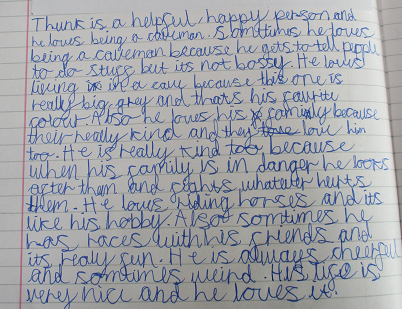 Thunk is a helpful happy person and
he loves being a caveman. Somtimes he loves
being a caveman because he gets to tell people
to do stuff but its not bossy. He loves
living in a cave because this one is
really big, grey and thats his favrite
colour. Also he loves his family because
their really kind and they love him
too. He is really kind too because
when his family is in danger he looks
after them and fights whatever hurts
them. He loves riding horses and its
like his hobby. Also somtimes he
has races with his friends and
its realy fun. He is always cheerful
and somtimes weird. His life is
very nice and he loves it.